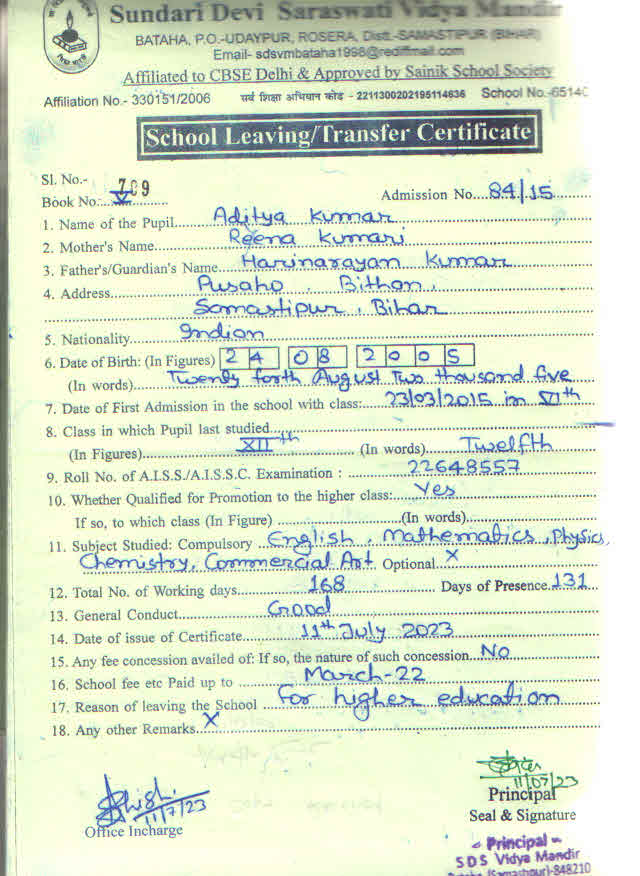 Sundari Devi Saraswati Vidya Mandir
BATAHA, P.O.-UDAYPUR, ROSERA, Distt.-SAMASTIPUR (BIHAR)
Email- sdsvmbataha1998@rediffmail.com
Affiliated to CBSE Delhi & Approved by Sainik School Society
Affiliation No.- 330151/2006 सर्व शिक्षा अभियान कोड - 2211300202195114636 School No.-6514
School Leaving/Transfer Certificate
Sl. No.- 709
Book No. V Admission No. 84/15
1. Name of the Pupil Aditya Kumar
2. Mother's Name Reena Kumari
3. Father's/Guardian's Name Harinarayan Kumar
4. Address Pusaho, Bithan,
Samastipur, Bihar
5. Nationality Indian
6. Date of Birth: (In Figures) 24 08 2005
(In words) Twenty forth August Two thousand five
7. Date of First Admission in the school with class: 23/03/2015 in VIth
8. Class in which Pupil last studied
(In Figures) XIIth (In words) Twelfth
9. Roll No. of A.I.S.S./A.I.S.S.C. Examination : 22648557
10. Whether Qualified for Promotion to the higher class: Yes
If so, to which class (In Figure) (In words)
11. Subject Studied: Compulsory English, Mathematics, Physics,
Chemistry, Commercial Art Optional X
12. Total No. of Working days 168 Days of Presence 131
13. General Conduct Good
14. Date of issue of Certificate 11th July 2023
15. Any fee concession availed of: If so, the nature of such concession No
16. School fee etc Paid up to March-22
17. Reason of leaving the School for higher education
18. Any other Remarks X
11/7/23
Office Incharge
11/07/23
Principal
Seal & Signature
Principal
SDS Vidya Mandir
(Samastipur)-848210